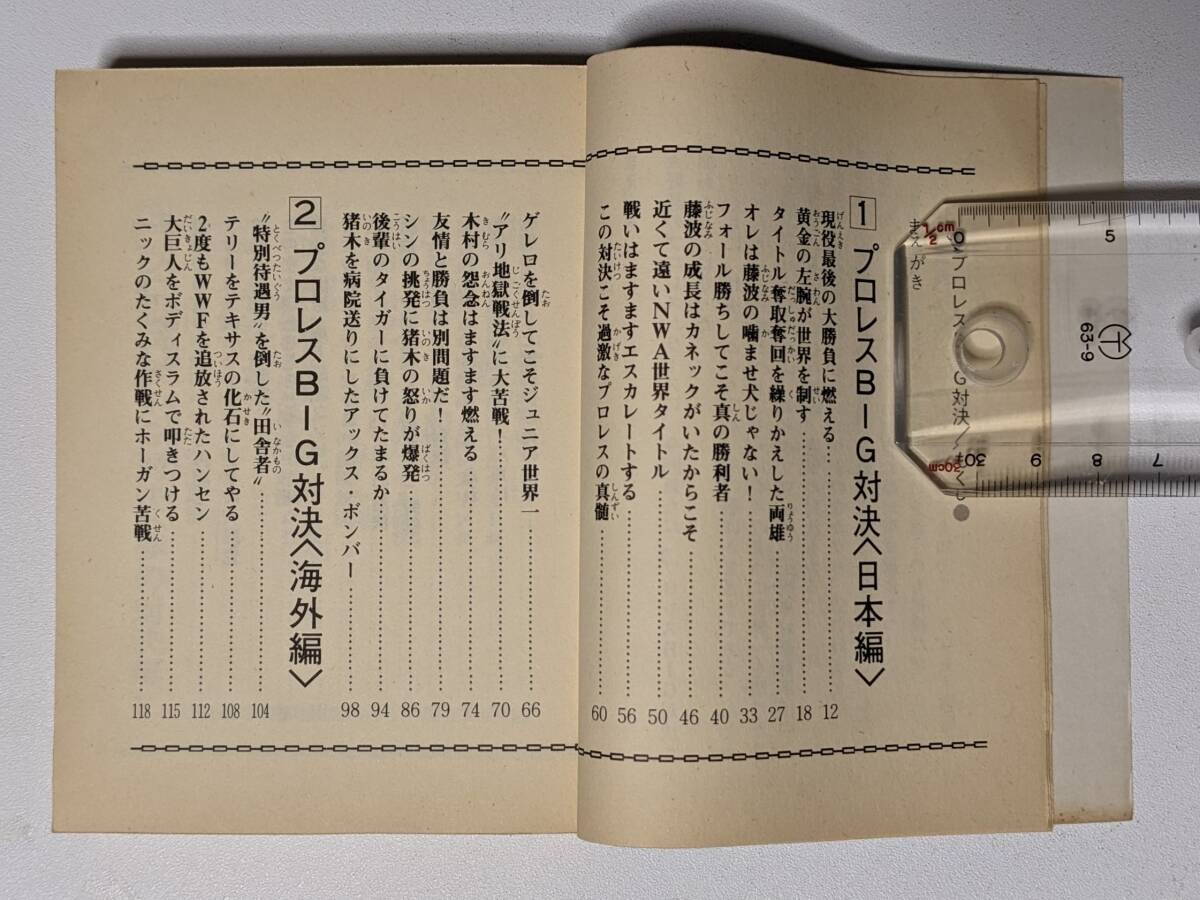 プロレスBIG対決/もくじ●
まえがき
1 プロレスBIG対決〈日本編〉
現役最後の大勝負に燃える……12
黄金の左腕が世界を制す……18
タイトル奪取奪回を繰りかえした両雄……27
オレは藤波の噛ませ犬じゃない!……33
フォール勝ちしてこそ真の勝利者……40
藤波の成長はカネックがいたからこそ……46
近くて遠いNWA世界タイトル……50
戦いはますますエスカレートする……56
この対決こそ過激なプロレスの真髄……60
ゲレロを倒してこそジュニア世界一……66
"アリ地獄戦法"に大苦戦!……70
木村の怨念はますます燃える……74
友情と勝負は別問題だ!……79
シンの挑発に猪木の怒りが爆発……86
後輩のタイガーに負けてたまるか……94
猪木を病院送りにしたアックス・ボンバー……98
2 プロレスBIG対決〈海外編〉
"特別待遇男"を倒した"田舎者"……104
テリーをテキサスの化石にしてやる……108
2度もWWFを追放されたハンセン……112
大巨人をボディスラムで叩きつける……115
ニックのたくみな作戦にホーガン苦戦……118
0 5
63-9
30cm
30 9 8 7